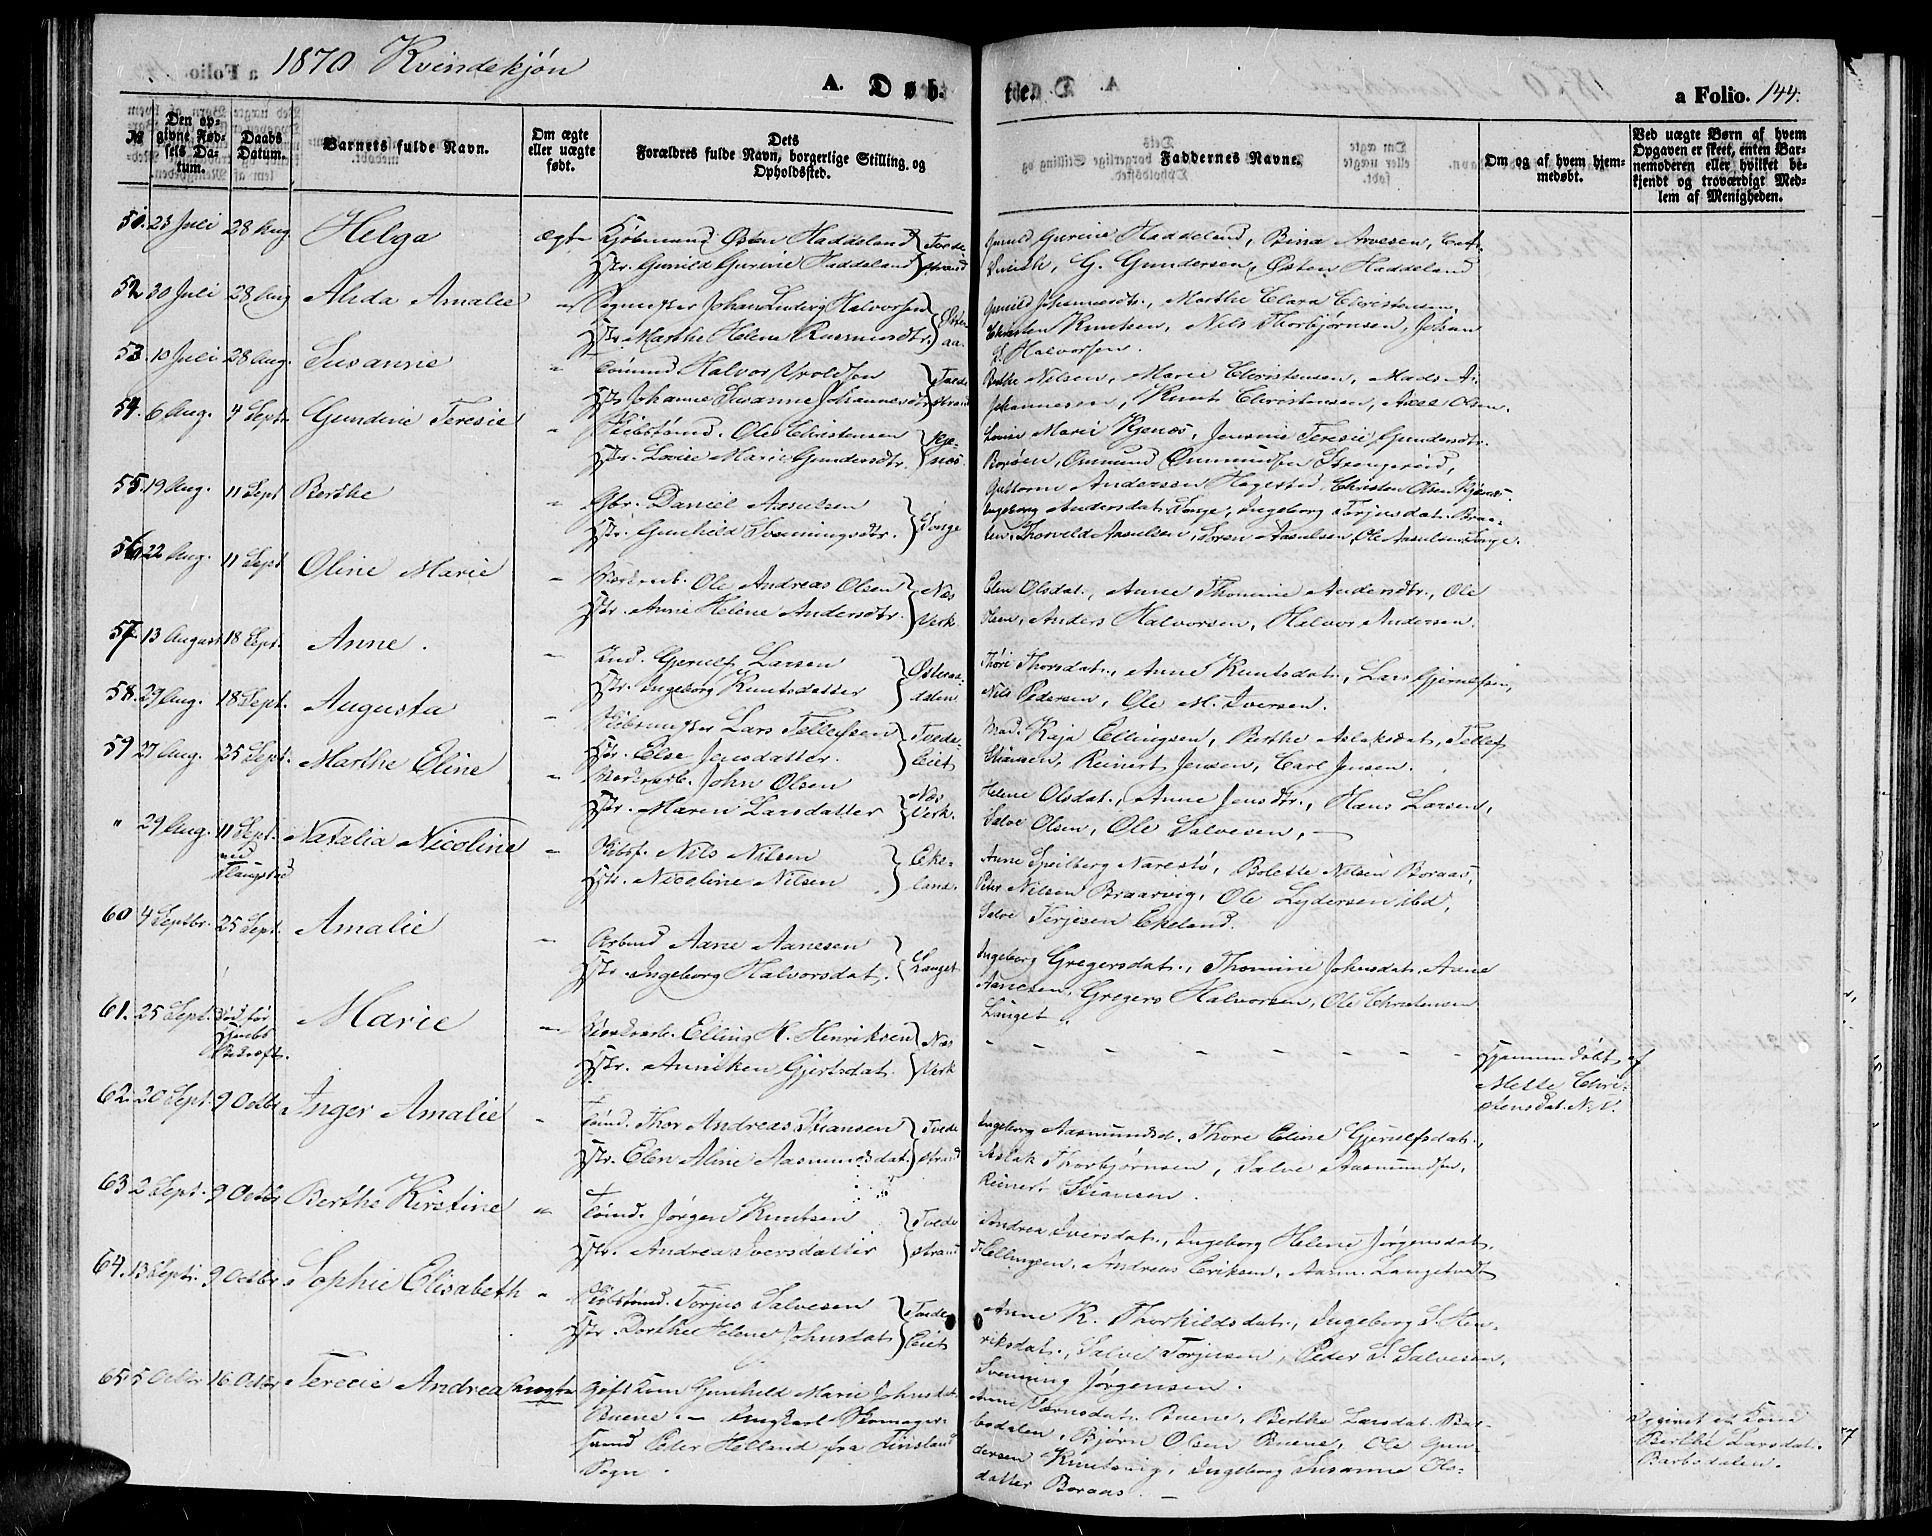 1870 Kvindekjön
A. Døb-
te.
a Folio. 144.
№
Den op-
givne Fød-
sels Da-
tum.
Daabs
Datum.
Barnets fulde Navn.
Om ægte
eller uægte
født.
Dets
Forældres fulde Navn, borgerlige Stilling, og
Opholdssted.
Faddernes Navne.
Om og af hvem hjem-
medøbt.
Ved uægte Børn af hvem
Opgaven er skeet, enten Bar-
nemoderen eller hvilket be-
kjendt og troværdigt Med-
lem af Menigheden.
51. 23 Juli 28 Aug Helga ægte Kjöbmand Østen Haddeland Tvede
Hstr. Gunild Gurine Haddeland strand
Gunild Gurine Haddeland, Bina Arvesen,
G. Gundersen, Østen Haddeland
52 30 Juli 28 Aug Alida Amalie Johan Ludvig Halvorsen Østen
Hstr. Marthe Helene Rasmusdtr. aa.
Gunild Johannesdtr., Marthe Clara Christensen,
Christen Knutsen, Nils Thorbjørnsen, Johan
L. Halvorsen.
53. 10 Juli 28 Aug. Susanne " Halvor Tvede
Hstr Johanne Susanne Johannesdtr strand
Berthe Nilsen, Marie Christensen, Mads A.
Johannesen, Knut Christensen, Axel Olsen.
54. 6 Aug. 4 Septr Gundine Teresie " Ole Christensen Kje-
Hstr. Lovise Marie Gundersdtr. næs.
Lovise Marie Kjenæs, Jensine Teresie Gundersdtr.
Borøen, Omund Ommundsen Strengereid,
Guttorm Andersen Hagested, Christen Olsen Kjenæs.
55. 19 Aug. 11 Sept Berthe " Gbr. Daniel Aasulsen Songe
Hstr. Gunhild Sveningsdtr.
Ingeborg Andersdat. Songe, Ingeborg Torjusdat. Braa-
ten, Thorvald Aasulsen, Soren Aasulsen, Ole Aasulsen Songe.
56 22 Aug. 11 Sept Oline Marie " Ole Andreas Olsen Næs
Hstr. Anne Helene Andersdtr. Verk.
Elen Olsdat., Anne Thomine Andersdtr., Ole
Olsen, Anders Halvorsen, Halvor Andersen.
57. 13 August 18 Sept. Anne. " Ind. Gjerulf Larsen Østeraa-
Hstr. Ingeborg Knutsdatter dalen.
Thore Thorsdat., Anne Knutsdat., Lars Gjerulfsen,
Nils Pedersen, Ole M. Iversen.
58. 29 Aug. 18 Sept. Augusta " Lars Tellefsen Tvede-
Hstr. Else Jensdatter. Eiet
Mad. Kaja Ellingsen, Berthe Aslaksdat, Tellef
Stiansen, Reinert Jensen, Carl Jensen.
59 27 Aug. 25 Sept. Marthe Eline " Verksarb. John Olsen Næs
Hstr. Maren Larsdatter Verk.
Helene Olsdat., Anne Jensdtr., Hans Larsen,
Salve Olsen, Ole Salvesen, —
" 29 Aug. 11 Sept. Natalia Nicoline " Nils Nilsen Eke-
ved
Hstr. Nicoline Nilsen land.
Anne Speilberg Narestö, Bolette Nilsen Boraas,
Peter Nilsen Braarvig, Ole Lydersen ibd,
Salve Terjesen Ekeland.
60 4 Septbr. 25 Sept. Amalie " Arbmd Aane Aanesen Langet
Hstr. Ingeborg Halvorsdat.
Ingeborg Gregersdat., Thomine Johnsdat., Aane
Aanesen, Gregers Halvorsen, Ole Christensen
Langet.
61. 25 Sept. Död før Marie " Verksarb. Elling K. Henriksen Næs
Hstr. Anniken Gjertsdat. Verk
Hjemmedöbt af
Mette Chri-
stensdat. N. V.
62. 20 Sept. 9 Octbr Inger Amalie " Tömd. Thor Andreas Stiansen Tvede
Hstr. Elen Aline Aasmundsdat. strand
Ingeborg Aasmundsd. Thore Eline Gjerulfsdat.,
Aslak Thorbjørnsen, Salve Aasmundsen,
Reinert Stiansen.
63 2 Sept. 9 Octbr Berthe Kirstine " Tömd. Jörgen Knutsen Tvede
Hstr. Andrea Iversdatter strand
Andrea Iversdat., Ingeborg Helene Jørgensdat.
T. Ellingsen, Andreas Eriksen, Aasm. Langetvedt
64. 13 Septr. 9 Octbr. Sophie Elisabeth " Torjus Salvesen Tvede
Hstr. Dorthe Helene Johnsdat. Eiet
Anne K. Thorkildsdat., Ingeborg S. Hen-
riksdat., Salve Torjusen, Peder S. Salvesen,
Svenning Jørgensen.
65 5 Octbr 16 Octbr Terecie Andrea uægte gift Kone Gunhild Marie Johnsdat.
Buene. — Ungkarl Skomager-
svend Peder Helland fra Finsland
Sogn.
Anne Bjørnsdat. Buene, Berthe Larsdat. Bar-
bodalen, Bjørn Olsen Buene, Ole Gun-
dersen Knutsvig, Ingeborg Susanne Ols-
datter Boraas. —
Opgivet af Kone
Berthe Larsdat.
Barbodalen.